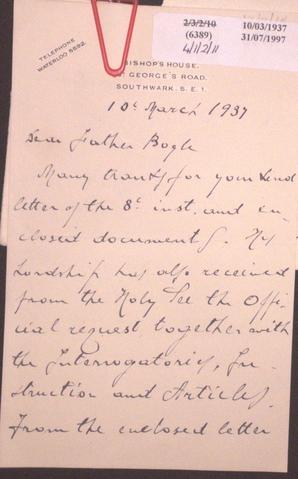 2/3/2/10
(6389)
4/1/2/11
10/03/1937
31/07/1997
TELEPHONE
WATERLOO 5592.
BISHOP'S HOUSE,
ST GEORGE'S ROAD,
SOUTHWARK. S.E.1.
10th March 1937
Dear Father Bogle
Many thanks for your kind
letter of the 8th inst. and en-
closed documents. His
Lordship has also received
from the Holy See the Offi-
cial request together with
the Interrogatories, In-
struction and Articles.
From the enclosed letter